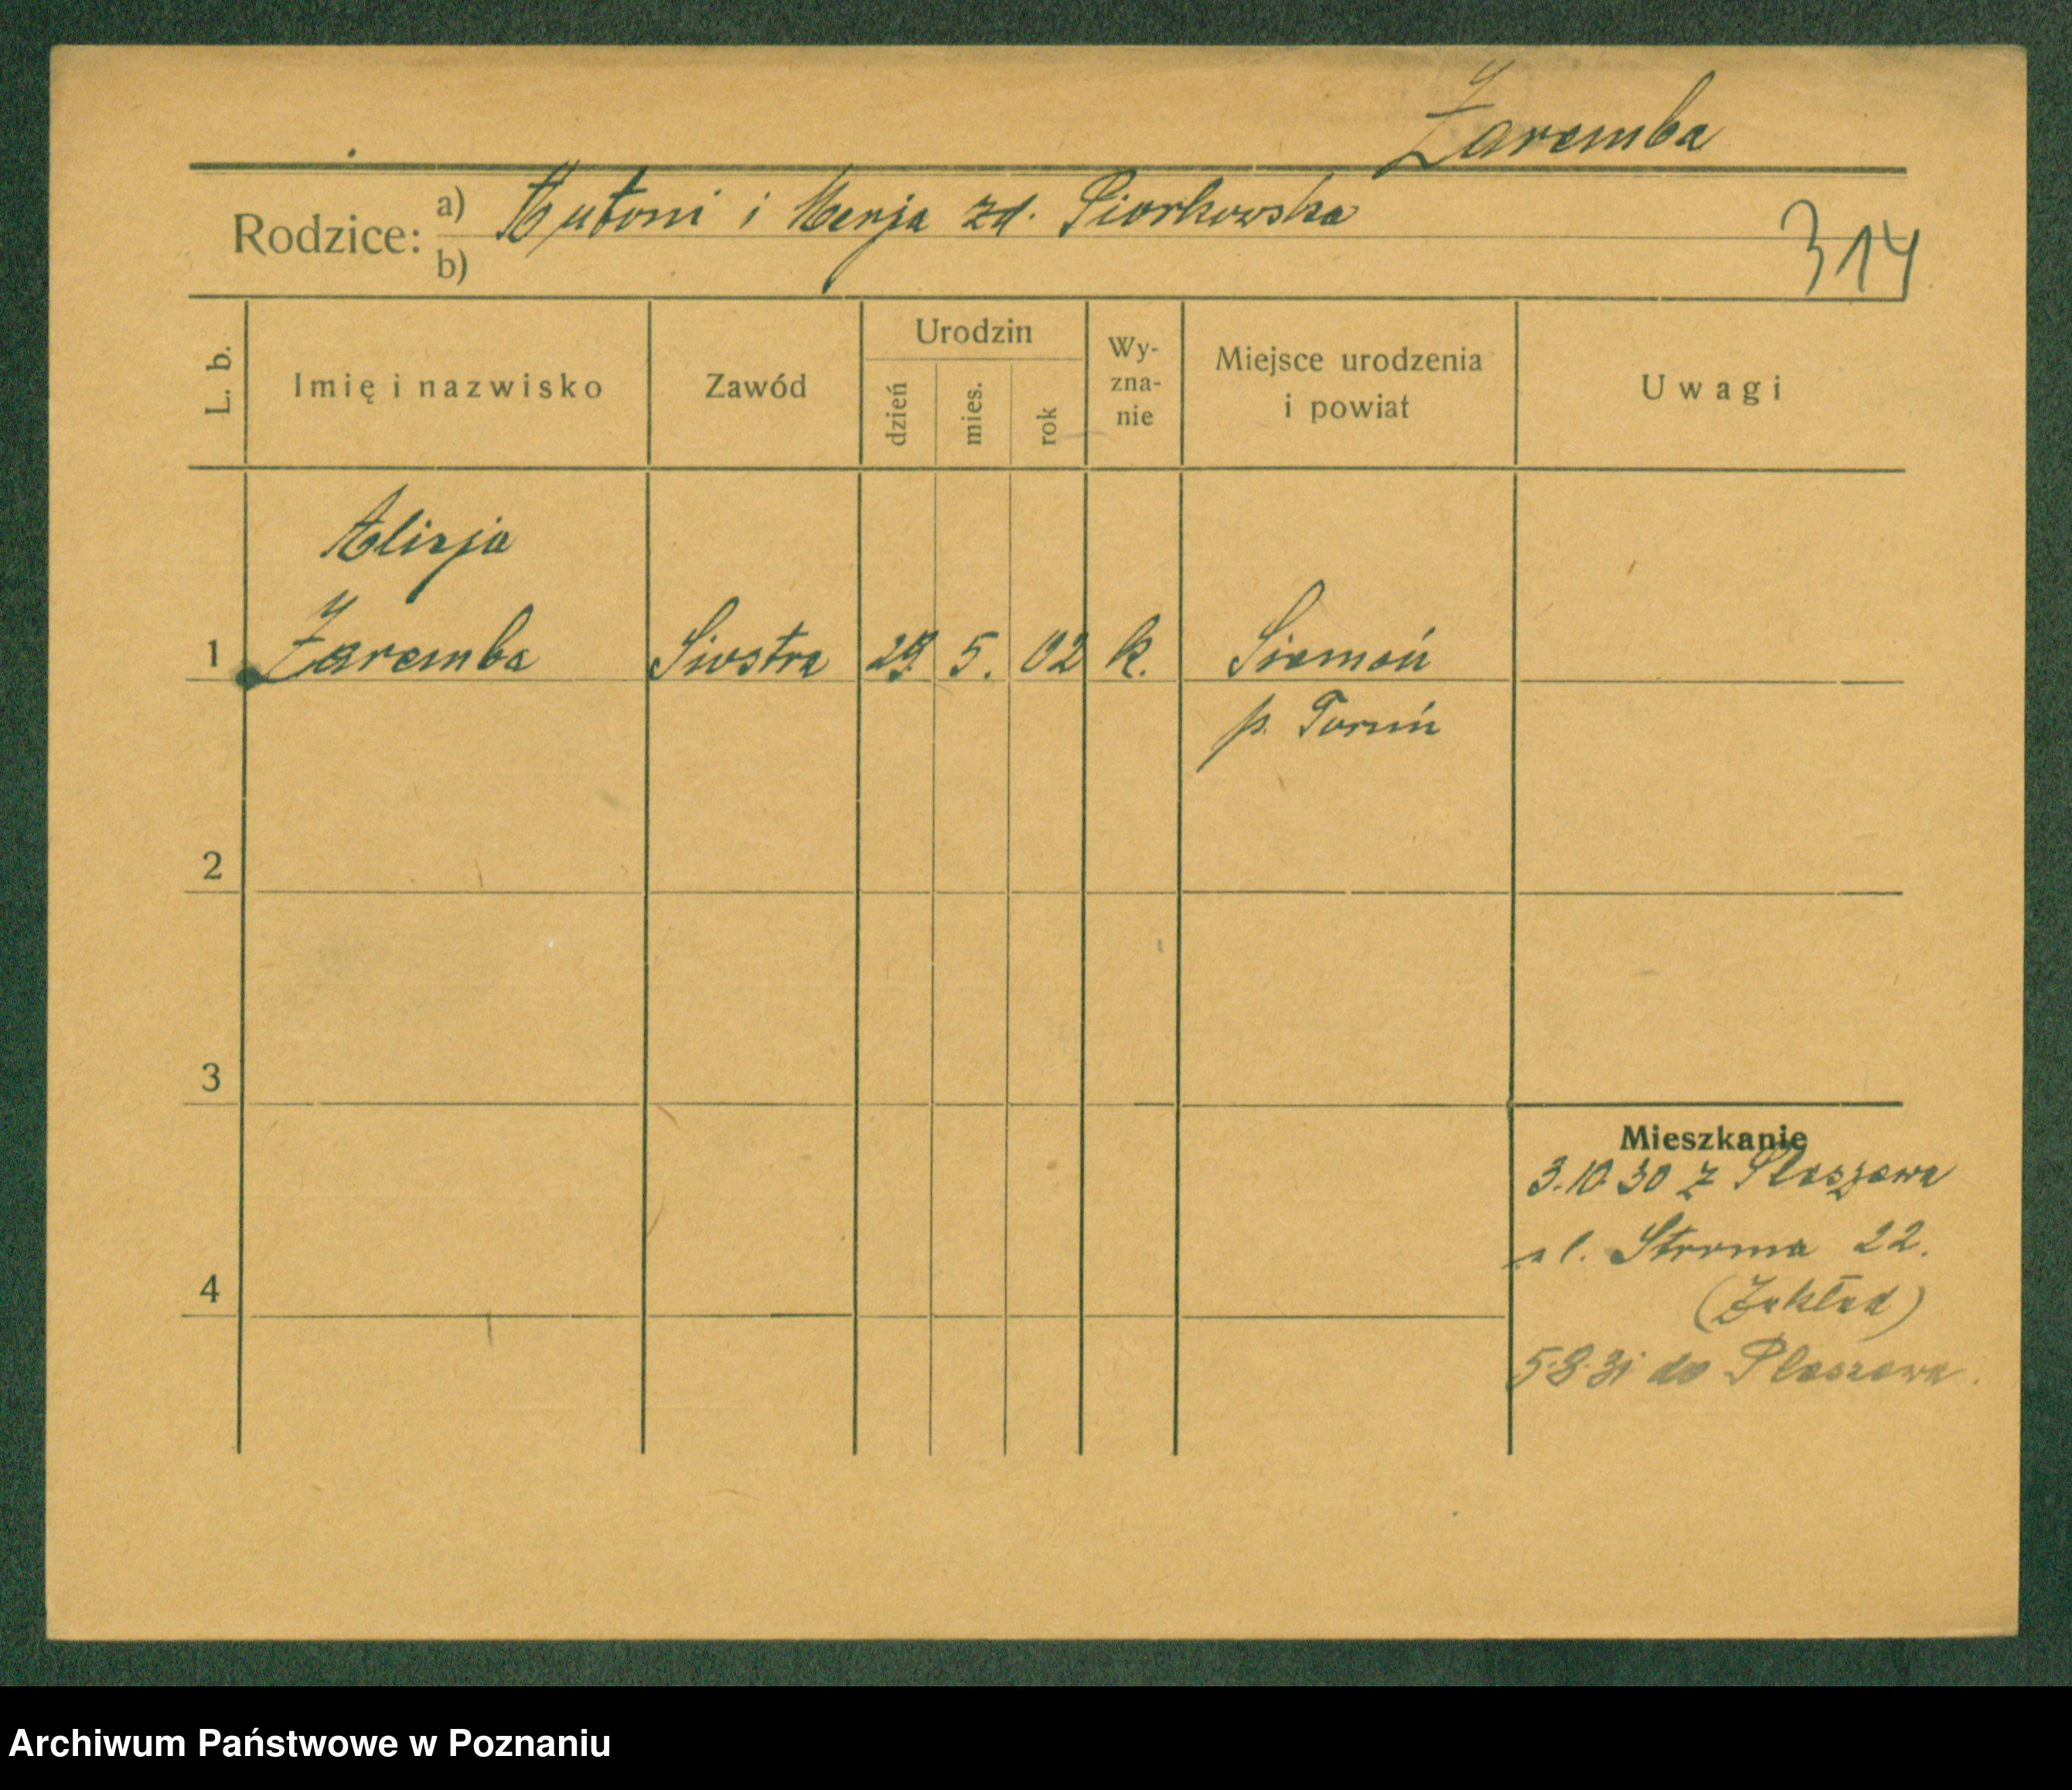 Zaremba
Rodzice: a) Antoni i Marja zd. Piorkowska
b)
314
L. b.
Imię i nazwisko
Zawód
Urodzin
dzień
mies.
rok
Wy-
zna-
nie
Miejsce urodzenia
i powiat
Uwagi
Alicja
1 Zaremba Siostra 29. 5. 02 k. Siemoń
p. Toruń
2
3
4
Mieszkanie
3.10.30 z Pleszewa
ul. Stroma 22.
(Zakład)
5.8.31 do Pleszewa.
Archiwum Państwowe w Poznaniu